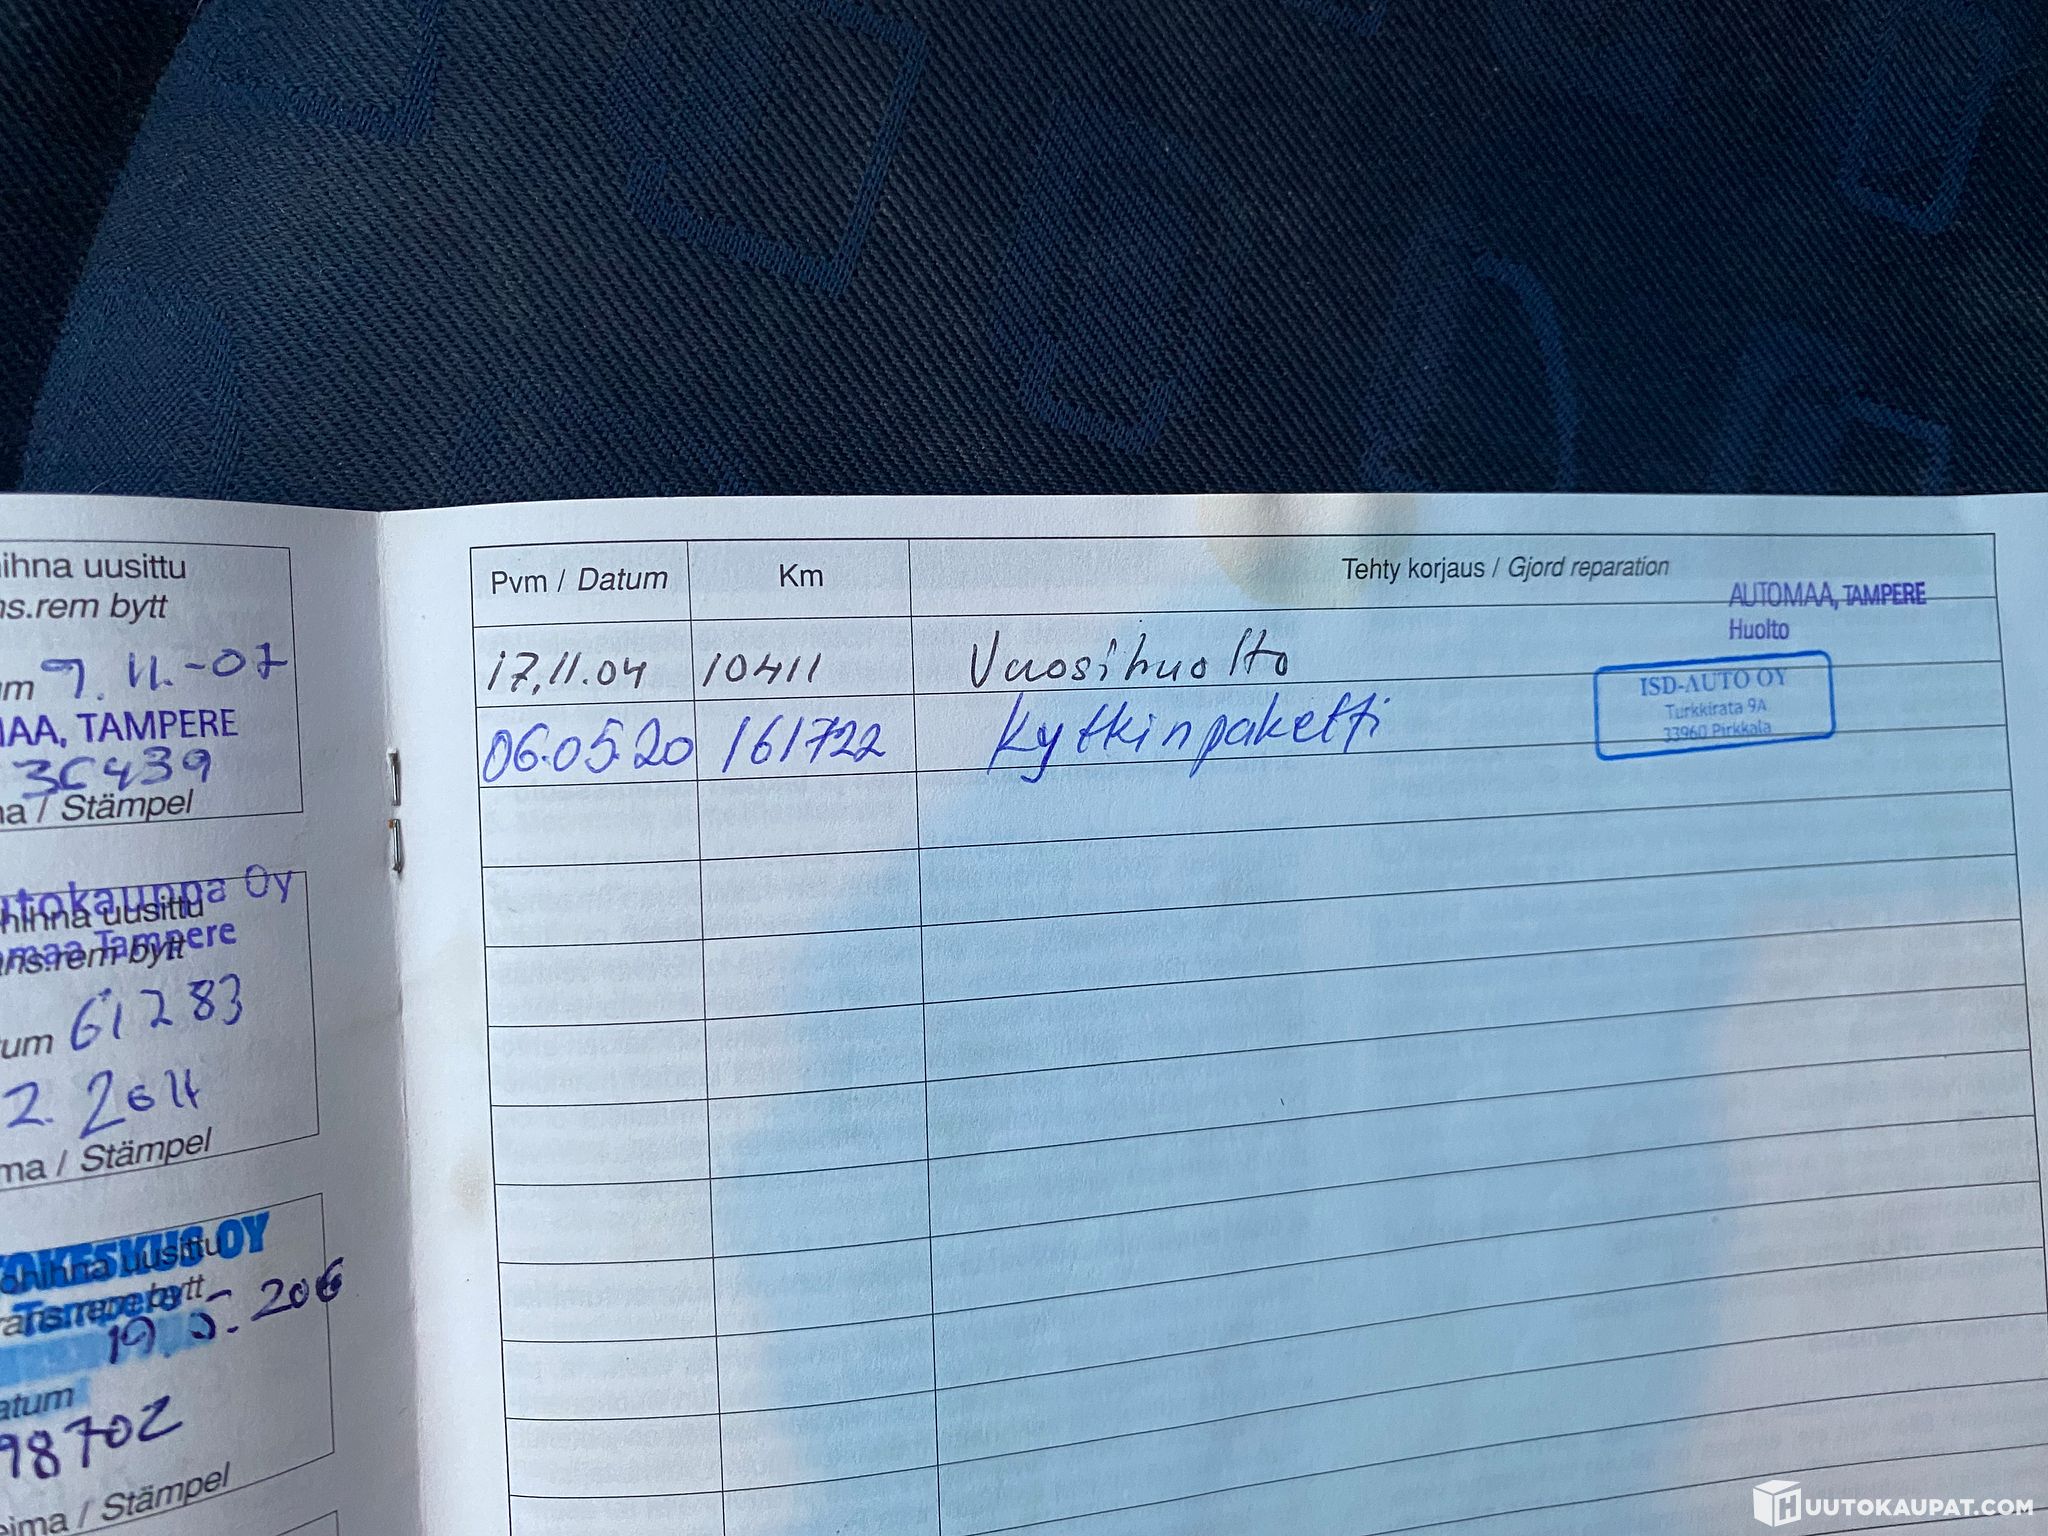 ihna uusittu
ns.rem bytt
um 9.11.-07
MAA, TAMPERE
36439
na / Stämpel
utokauppa Oy
hihna uusittu
omaa Tampere
ans.rem bytt
tum 61283
2. 2011
ma / Stämpel
TOKESKUS OY
ohihna uusittu
Tampere
rans.rem bytt
19.5.206
atum
98702
eima / Stämpel
Pvm / Datum Km Tehty korjaus / Gjord reparation
AUTOMAA, TAMPERE
Huolto
17.11.04 10411 Vuosihuolto
ISD-AUTO OY
Turkkirata 9A
33960 Pirkkala
06.05.20 161722 Kytkinpaketti
HUUTOKAUPAT.COM